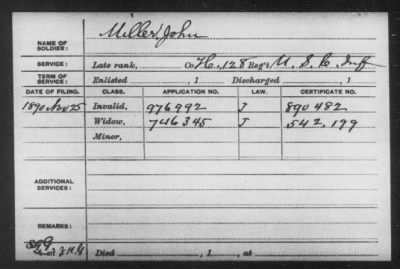 NAME OF SOLDIER: Miller, John
SERVICE: Late rank, Co. H, 128 Reg't U. S. C. Inff
TERM OF SERVICE: Enlisted , 1 Discharged , 1
DATE OF FILING. CLASS. APPLICATION NO. LAW. CERTIFICATE NO.
1890 Nov 25 Invalid, 976992 J 890482
Widow, 746345 J 542,199
Minor,
ADDITIONAL SERVICES:
REMARKS:
Died , 1 , at